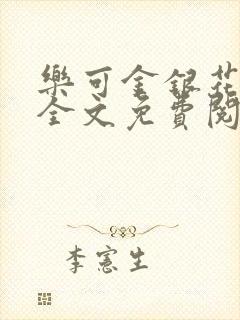 樂可金銀花
全文免費閱
李憲生